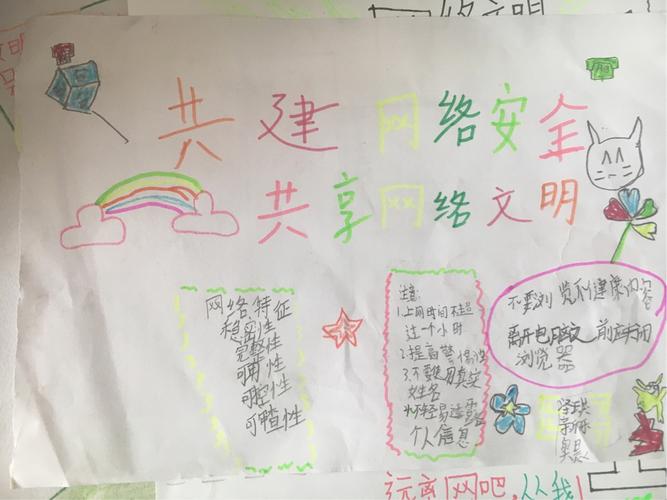 共建网络安全
共享网络文明
网络特征
稳密性
完整性
可用性
可控性
可查性
注意:
1.上网时间不超
过一个小时
2.提高警惕性
3.不要使用真实
姓名
不轻易透露
个人信息
不要浏览不健康内容
离开电脑前应关闭
浏览器
远离网吧 从我